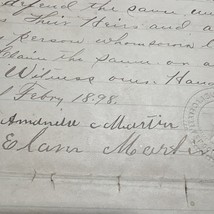 defend the same un
Their Heirs and a
person whomsoever
Claim the same or a
Witness our Hand
Febry 1898.
Amanda Martin
Elam Martin